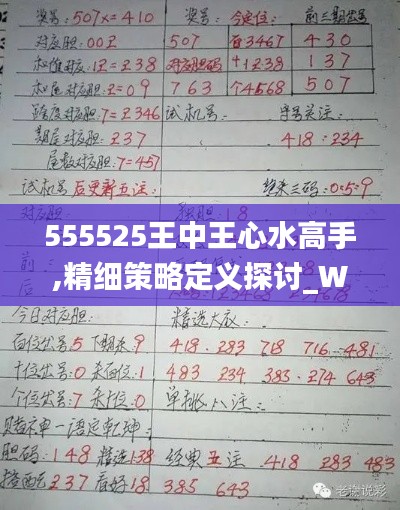 奖号:507X=410 奖号: 今定位: 前三期奖号
对应胆:00 507 百3467 430
1=238 对应胆码 十1238 137
对应胆:0=09 763 个4568 507
跨度对应胆:7=2346 试机号: 关注:
期尾对应胆:237 418:234
尾数对应胆:7=457
试机号后更新五注: 绝杀三码:0:5:9
独胆:18
555525王中王心水高手
,精细策略定义探讨_W
今日对应胆: 精选大底:
百位出号5下期杀9 418.283 718 716-481
十位出号:0杀百位:1 483 234 383-274 643
个位出号:7杀十位:0 单挑八注:
赌神一语定乾坤:
胆码:148 精选138 经典五注.418 283 483
237 看好18 385 643
老
说彩